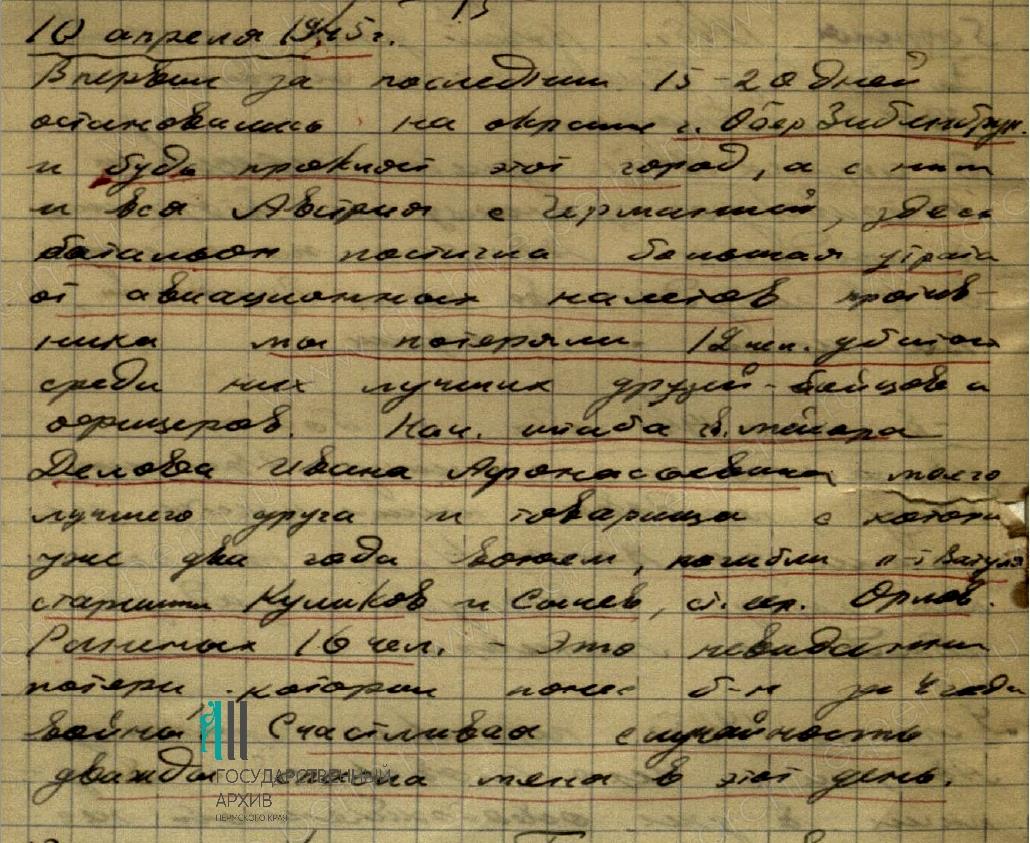 10 апреля 1945 г.
Впервые за последнии 15-20 дней
остановились на окраине г. Обер Зибленбрун.
и будь проклят этот город, а с ним
и вся Австрия с Германией, здесь
батальон постигла большая утрата
от авиационных налетов против-
ника мы потеряли 12 чел. убитых
среди них лучших друзей-бойцов и
офицеров. Нач. штаба гв. майора
Делова Ивана Афонасьевича моего
лучшего друга и товарища с котор
уже два года воюем, погибли л-т Ватуля
старшины Куликов и Сычев, ст. сер. Орлов.
Раненых 16 чел. - Это невиданни
потери которыи понес б-н за 4 года
войны. Счастливая случайность
дважды спасла меня в этот день.
ГОСУДАРСТВЕННЫЙ
АРХИВ
ПЕРМСКОГО КРАЯ